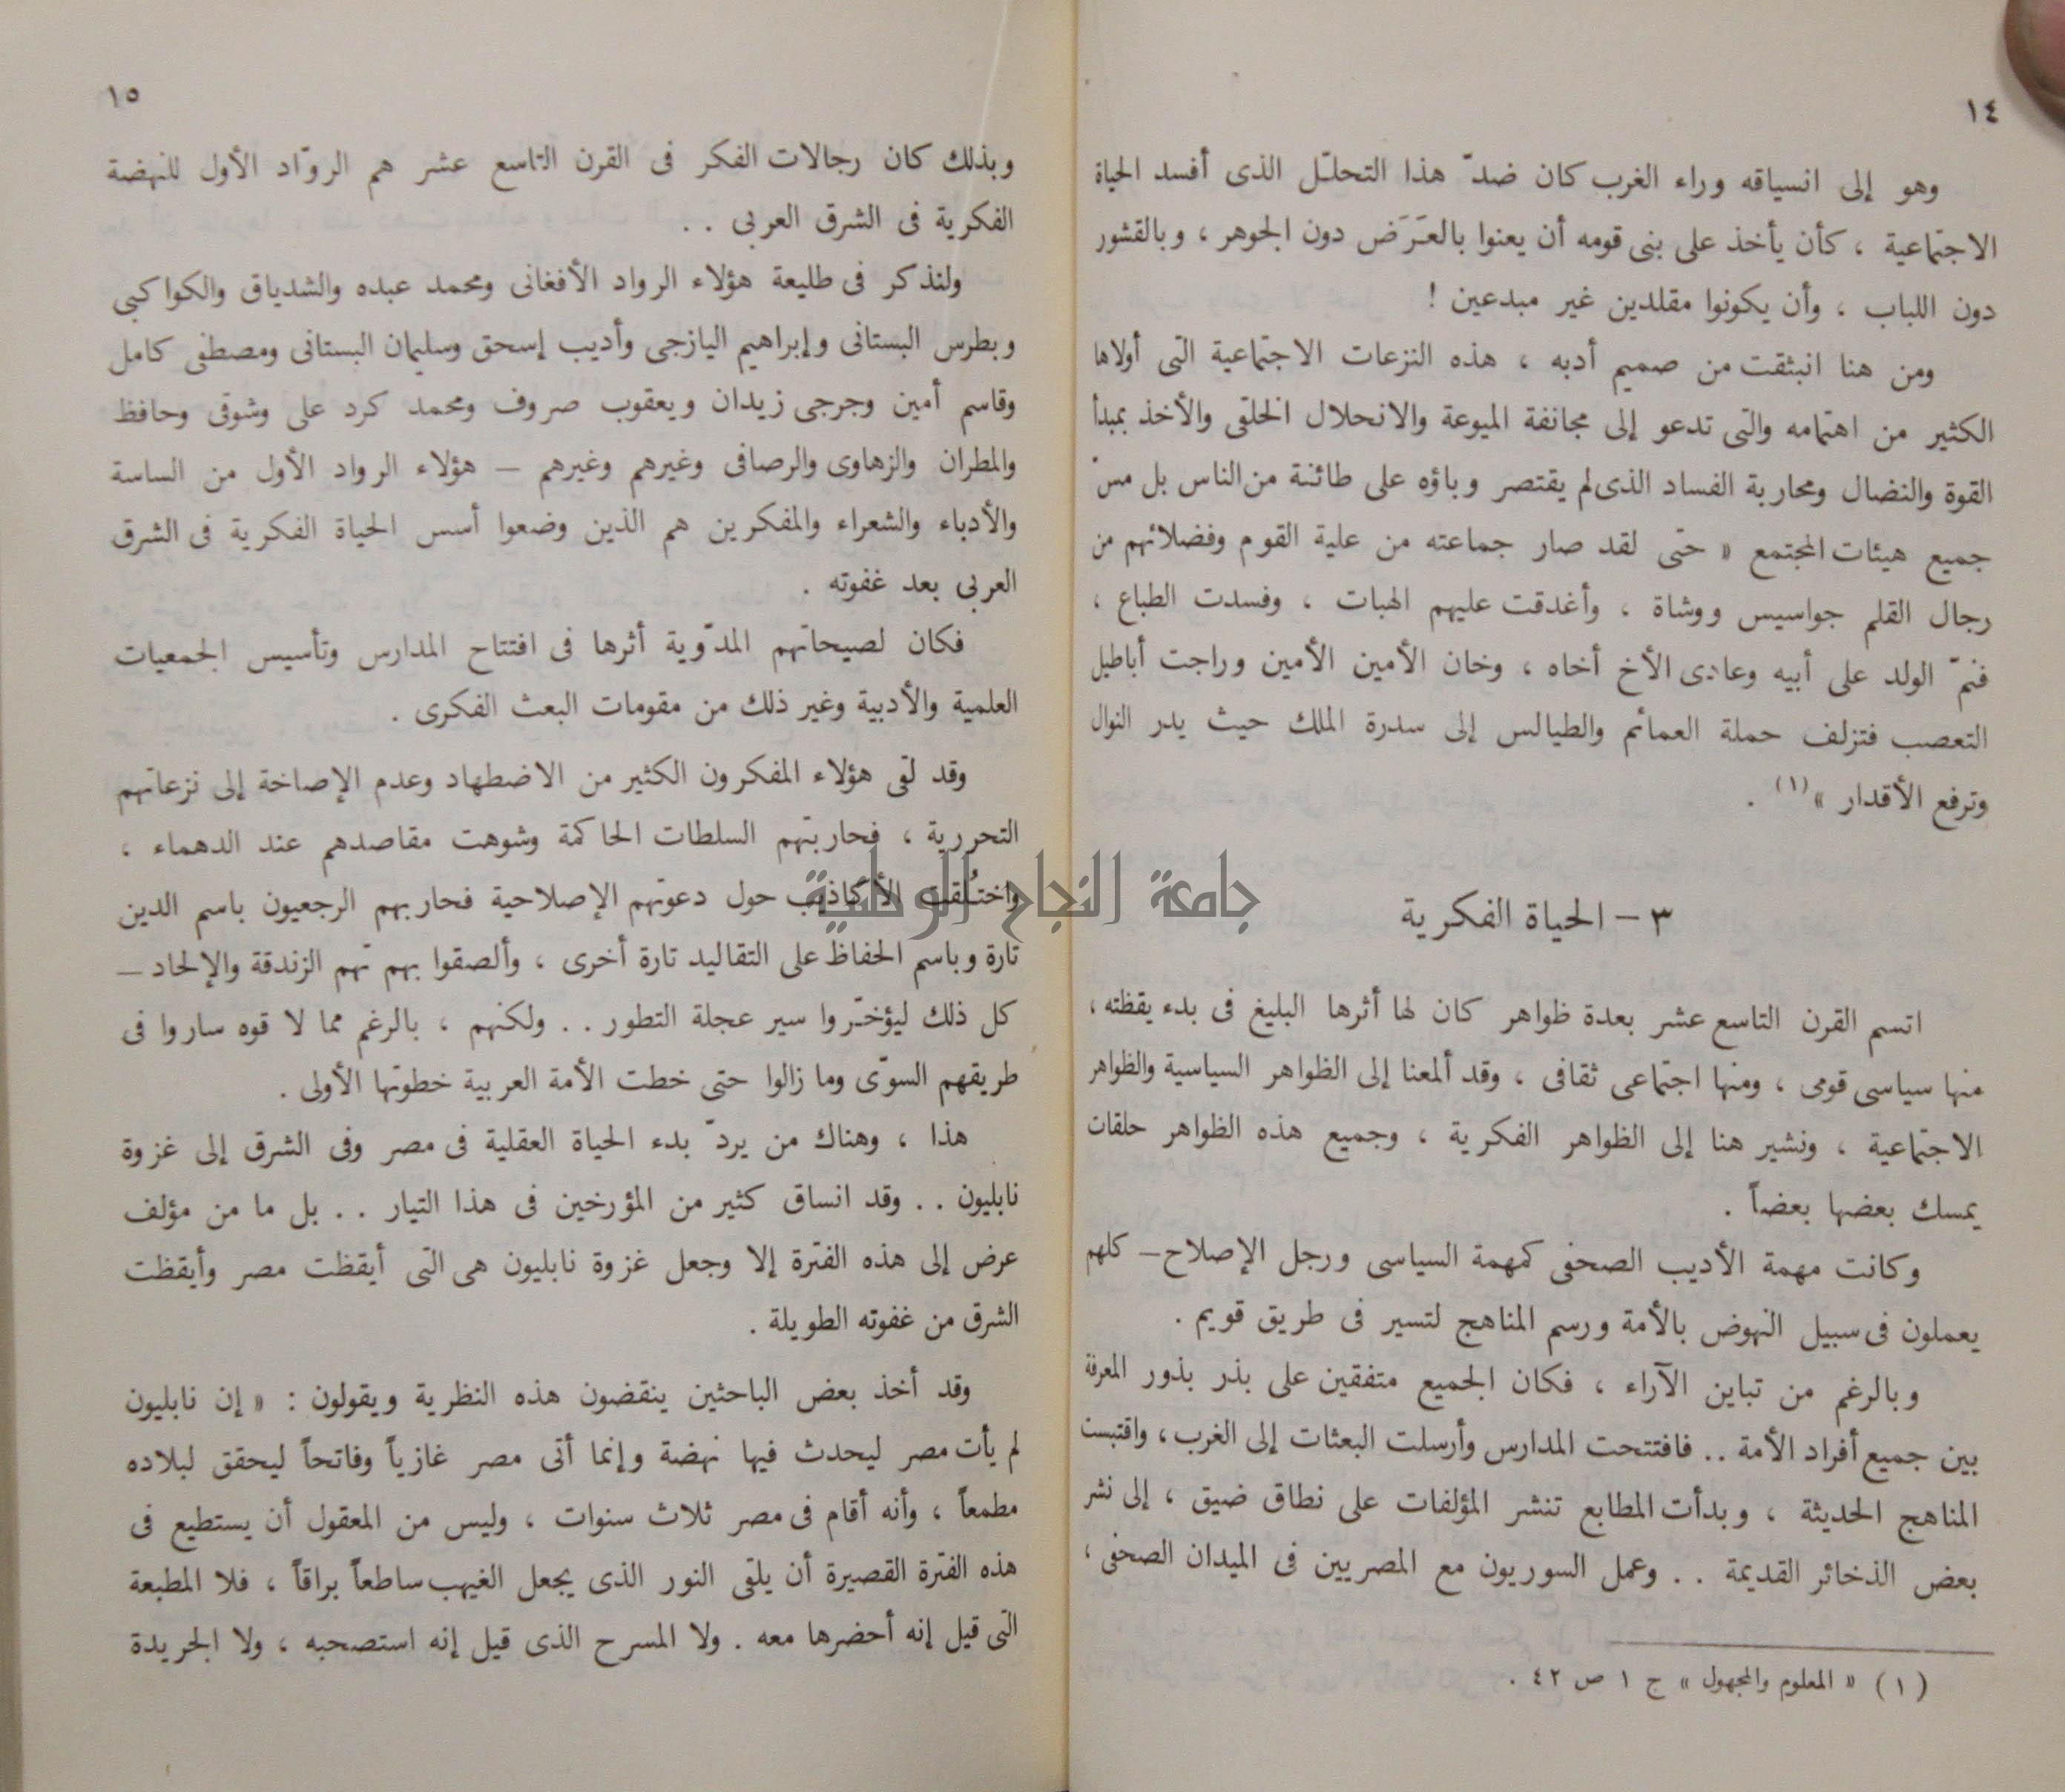 ١٤
وهو إلى انسياقه وراء الغرب كان ضدّ هذا التحلّل الذى أفسد الحياة
الاجتماعية ، كأن يأخذ على بنى قومه أن يعنوا بالعَرَض دون الجوهر ، وبالقشور
دون اللباب ، وأن يكونوا مقلدين غير مبدعين !
ومن هنا انبثقت من صميم أدبه ، هذه النزعات الاجتماعية التى أولاها
الكثير من اهتمامه والتى تدعو إلى مجانفة الميوعة والانحلال الخلقى والأخذ بمبدأ
القوة والنضال ومحاربة الفساد الذى لم يقتصر وباؤه على طائفة من الناس بل مسّ
جميع هيئات المجتمع « حتى لقد صار جماعته من علية القوم وفضلائهم من
رجال القلم جواسيس ووشاة ، وأغدقت عليهم الهبات ، وفسدت الطباع ،
فنمّ الولد على أبيه وعادى الأخ أخاه ، وخان الأمين الأمين وراجت أباطيل
التعصب فتزلف حملة العمائم والطيالس إلى سدرة الملك حيث يدر النوال
وترفع الأقدار »(١) .
٣ – الحياة الفكرية
اتسم القرن التاسع عشر بعدة ظواهر كان لها أثرها البليغ فى بدء يقظته ،
منها سياسى قومى ، ومنها اجتماعى ثقافى ، وقد ألمعنا إلى الظواهر السياسية والظواهر
الاجتماعية ، ونشير هنا إلى الظواهر الفكرية ، وجميع هذه الظواهر حلقات
يمسك بعضها بعضاً .
وكانت مهمة الأديب الصحفى كمهمة السياسى ورجل الإصلاح – كلهم
يعملون فى سبيل النهوض بالأمة ورسم المناهج لتسير فى طريق قويم .
وبالرغم من تباين الآراء ، فكان الجميع متفقين على بذر بذور المعرفة
بين جميع أفراد الأمة .. فافتتحت المدارس وأرسلت البعثات إلى الغرب ، واقتبست
المناهج الحديثة ، وبدأت المطابع تنشر المؤلفات على نطاق ضيق ، إلى نشر
بعض الذخائر القديمة . . وعمل السوريون مع المصريين فى الميدان الصحفى ،
(١) « المعلوم والمجهول » ج ١ ص ٤٢ .
١٥
وبذلك كان رجالات الفكر فى القرن التاسع عشر هم الروّاد الأول للنهضة
الفكرية فى الشرق العربى . .
ولنذكر فى طليعة هؤلاء الرواد الأفغانى ومحمد عبده والشدياق والكواكبى
وبطرس البستانى وإبراهيم اليازجى وأديب إسحق وسليمان البستانى ومصطفى كامل
وقاسم أمين وجرجى زيدان ويعقوب صروف ومحمد كرد على وشوقى وحافظ
والمطران والزهاوى والرصافى وغيرهم وغيرهم – هؤلاء الرواد الأول من الساسة
والأدباء والشعراء والمفكرين هم الذين وضعوا أسس الحياة الفكرية فى الشرق
العربى بعد غفوته .
فكان لصيحاتهم المدّوية أثرها فى افتتاح المدارس وتأسيس الجمعيات
العلمية والأدبية وغير ذلك من مقومات البعث الفكرى .
وقد لقى هؤلاء المفكرون الكثير من الاضطهاد وعدم الإصاخة إلى نزعاتهم
التحررية ، فحاربتهم السلطات الحاكمة وشوهت مقاصدهم عند الدهماء ،
واختُلقت الأكاذيب حول دعوتهم الإصلاحية فحاربهم الرجعيون باسم الدين
تارة وباسم الحفاظ على التقاليد تارة أخرى ، وألصقوا بهم تهم الزندقة والإلحاد –
كل ذلك ليؤخّروا سير عجلة التطور . . ولكنهم ، بالرغم مما لاقوه ساروا فى
طريقهم السوّى وما زالوا حتى خطت الأمة العربية خطوتها الأولى .
هذا ، وهناك من يردّ بدء الحياة العقلية فى مصر وفى الشرق إلى غزوة
نابليون . . وقد انساق كثير من المؤرخين فى هذا التيار . . بل ما من مؤلف
عرض إلى هذه الفترة إلا وجعل غزوة نابليون هى التى أيقظت مصر وأيقظت
الشرق من غفوته الطويلة .
وقد أخذ بعض الباحثين ينقضون هذه النظرية ويقولون : « إن نابليون
لم يأت مصر ليحدث فيها نهضة وإنما أتى مصر غازياً وفاتحاً ليحقق لبلاده
مطمعاً ، وأنه أقام فى مصر ثلاث سنوات ، وليس من المعقول أن يستطيع فى
هذه الفترة القصيرة أن يلقى النور الذى يجعل الغيهب ساطعاً براقاً ، فلا المطبعة
التى قيل إنه أحضرها معه . ولا المسرح الذى قيل إنه استصحبه ، ولا الجريدة
جامعة النجاح الوطنية